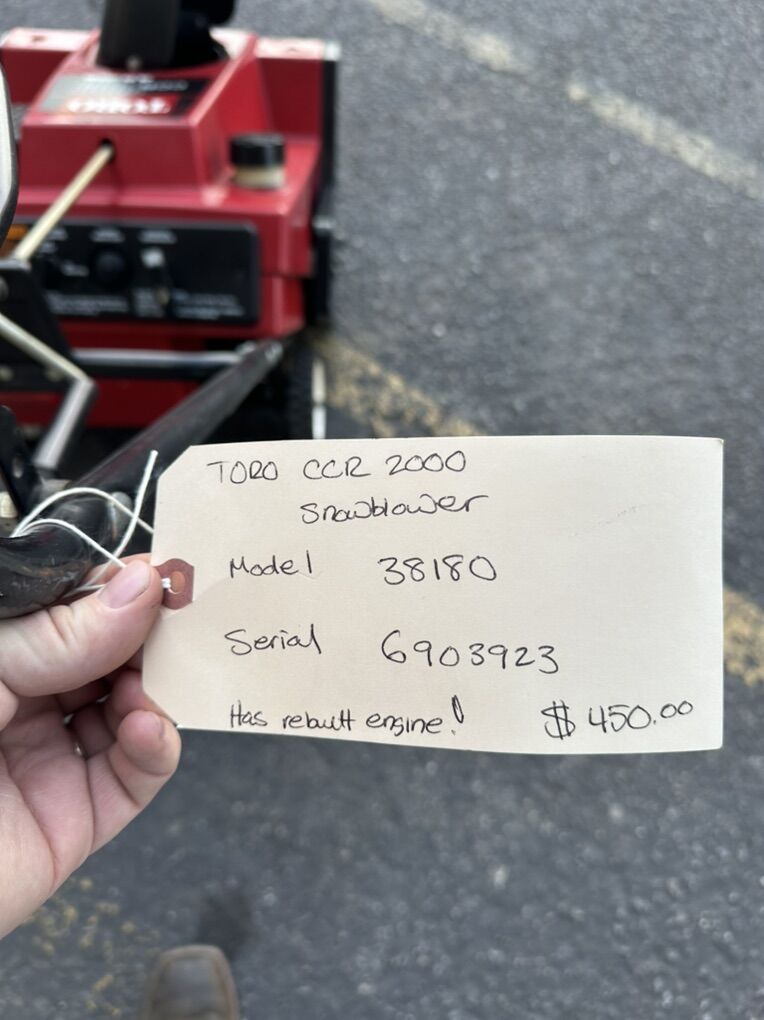 TORO CCR 2000
Snowblower
Model 38180
Serial 6903923
Has rebuilt engine! $450.00